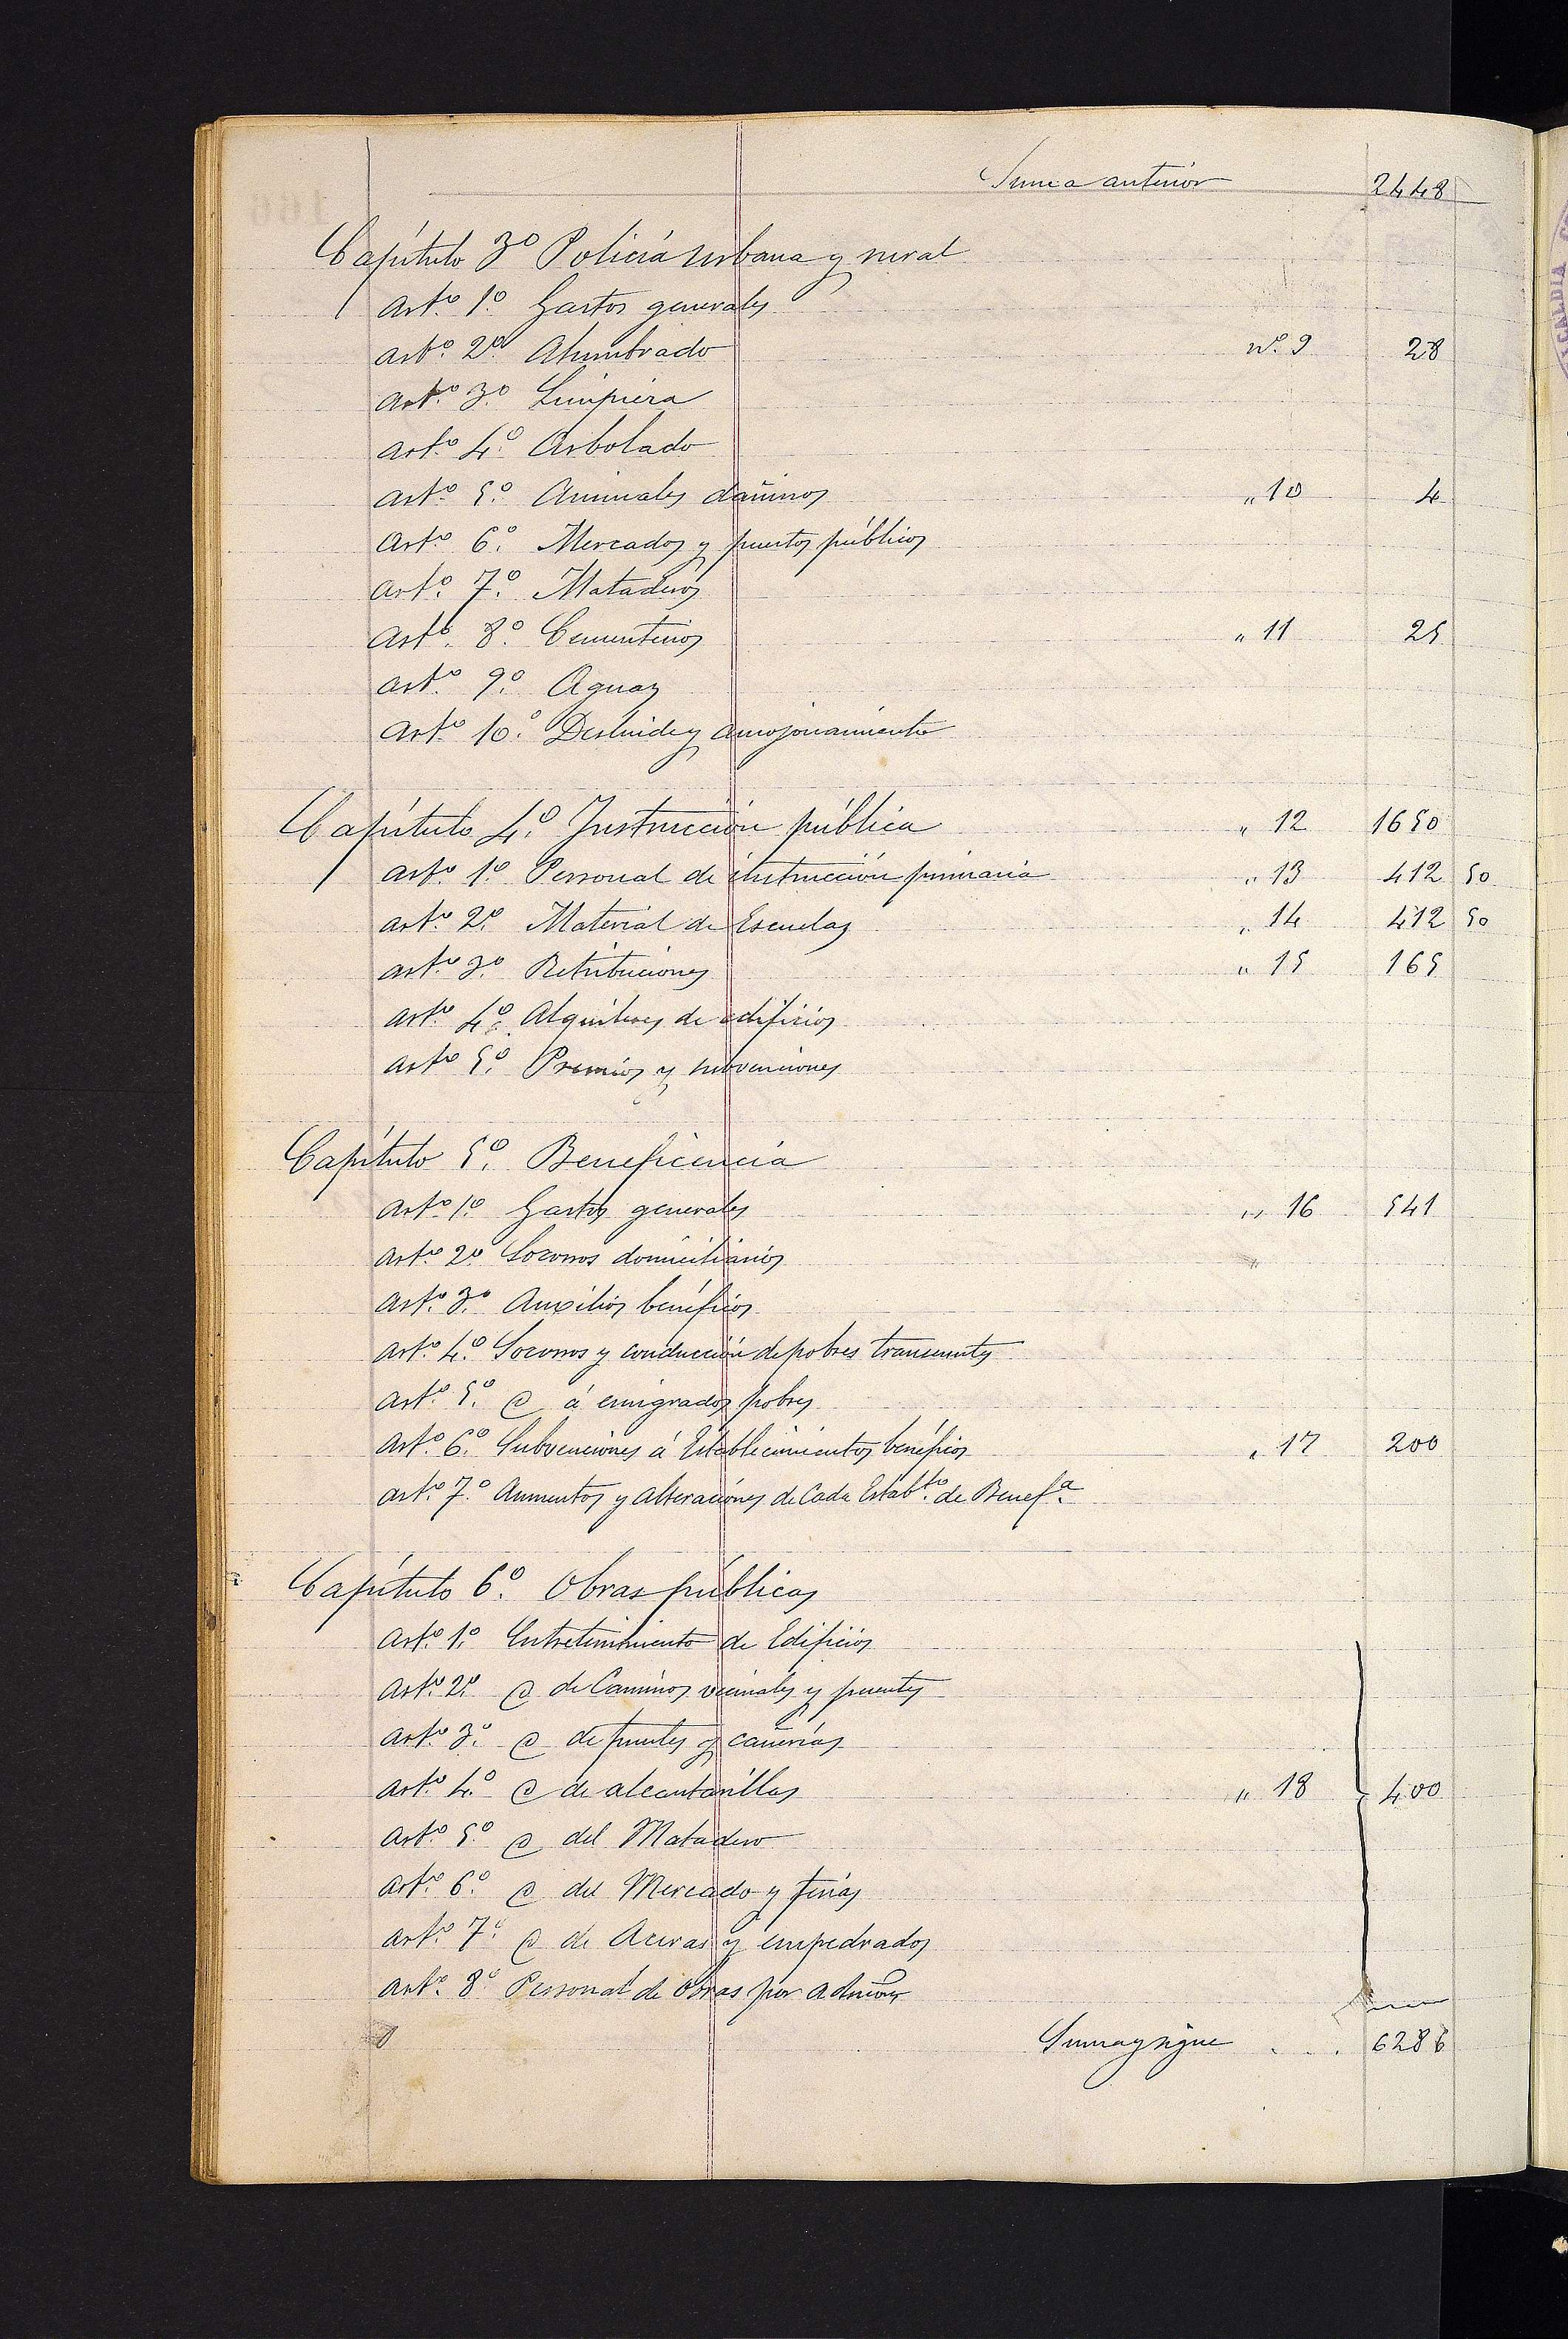 Suma anterior 2448
Capítulo 3º Policía urbana y rural
Artº 1º Gastos generales
artº 2º Alumbrado nº 9 28
artº 3º Limpieza
artº 4º Arbolado
artº 5º Animales dañinos " 10 4
artº 6º Mercados y puestos públicos
artº 7º Mataderos
artº 8º Cementerios " 11 25
artº 9º Aguas
artº 10º Deslindes y amojonamiento
Capítulo 4º Instrucción pública " 12 1650
artº 1º Personal de instrucción primaria " 13 412 50
artº 2º Material de Escuelas " 14 412 50
artº 3º Retribuciones " 15 165
artº 4º Alquileres de edificios
artº 5º Premios y subvenciones
Capítulo 5º Beneficencia
artº 1º Gastos generales " 16 541
artº 2º Socorros domiciliarios "
artº 3º Auxilios benéficos
artº 4º Socorros y conducción de pobres transeuntes
artº 5º @ á emigrados pobres
artº 6º Subvenciones á Establecimientos benéficos " 17 200
artº 7º Aumentos y alteraciones de Cada Establto de Benefª
Capítulo 6º Obras públicas
artº 1º Entretenimiento de Edificios
artº 2º @ de Caminos vecinales y puentes
artº 3º @ de fuentes y cañerías
artº 4º @ de alcantarillas " 18 400
artº 5º @ del Matadero
artº 6º @ del Mercado y ferias
artº 7º @ de Aceras y empedrados
artº 8º Personal de obras por admon
Suma y sigue . . . 6286